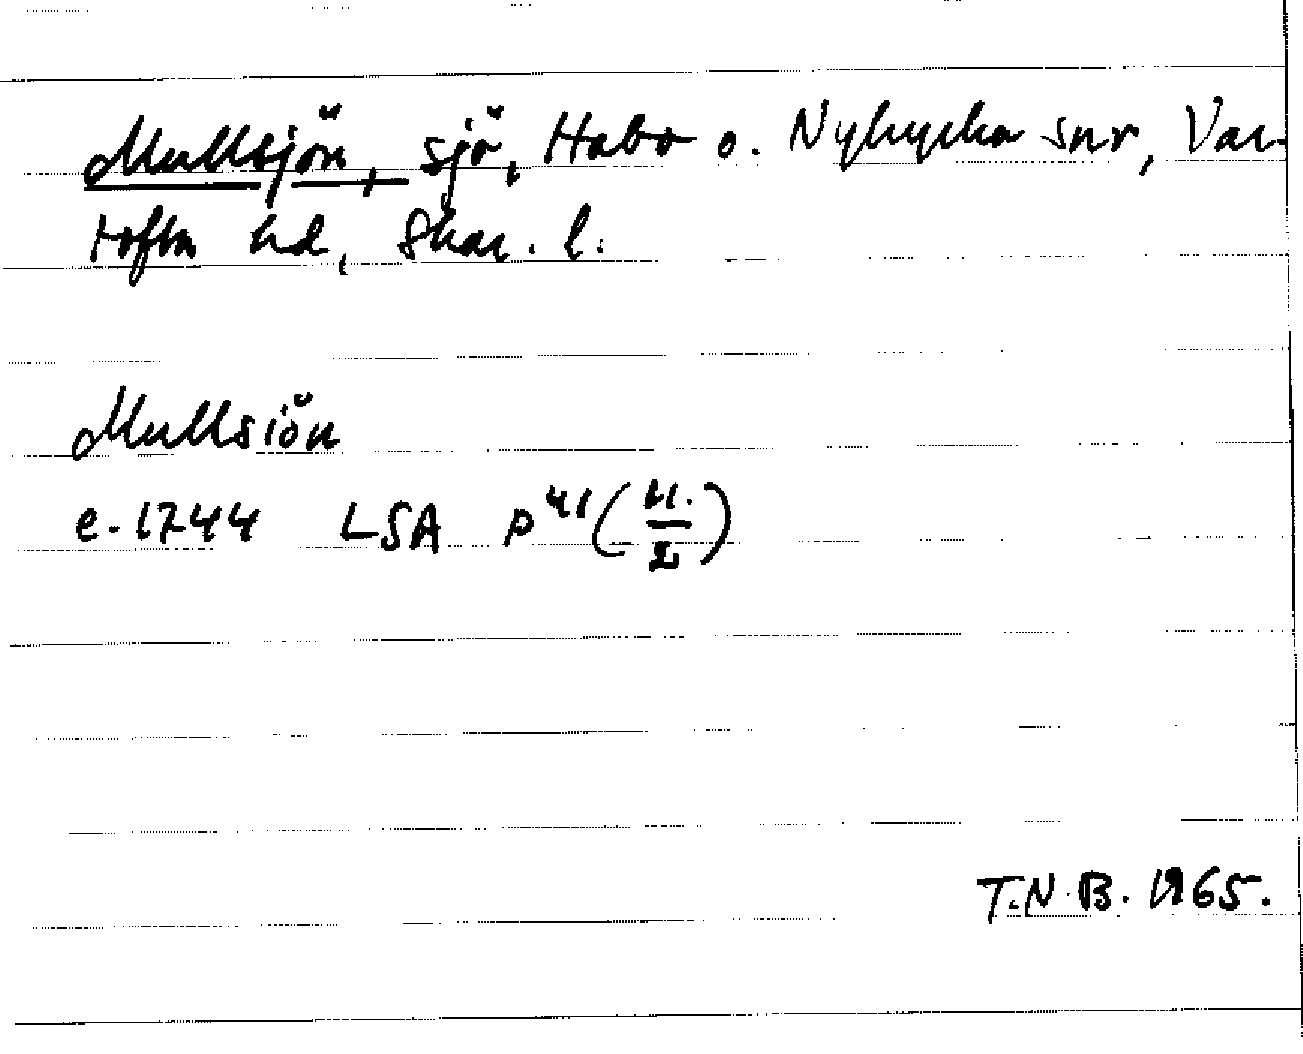 Mullsjön, sjö, Habo o. Nykyrka snr, Var-
tofta hd, Skar. l.
Mullsiön
e. 1744 LSA P 41 (11./2)
T.N.B. 1965.